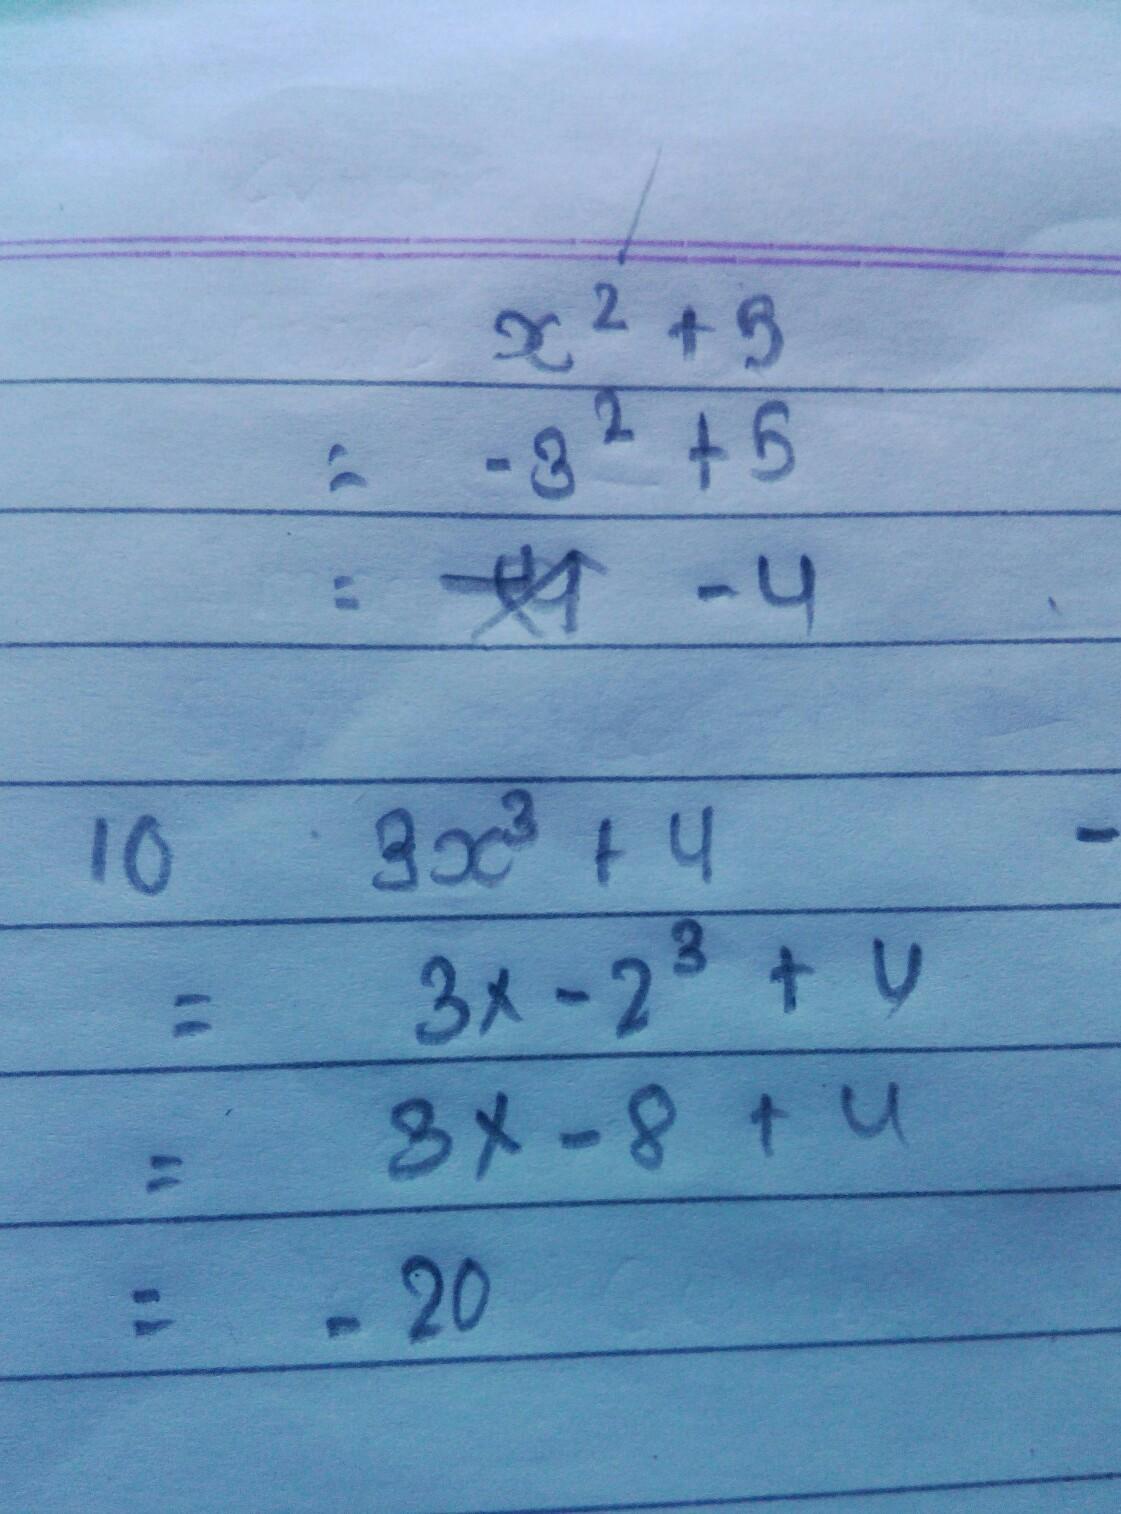 x² + 5
= -3² + 5
= -4
10 3x³ + 4 -
= 3x - 2³ + 4
= 3x - 8 + 4
= - 20